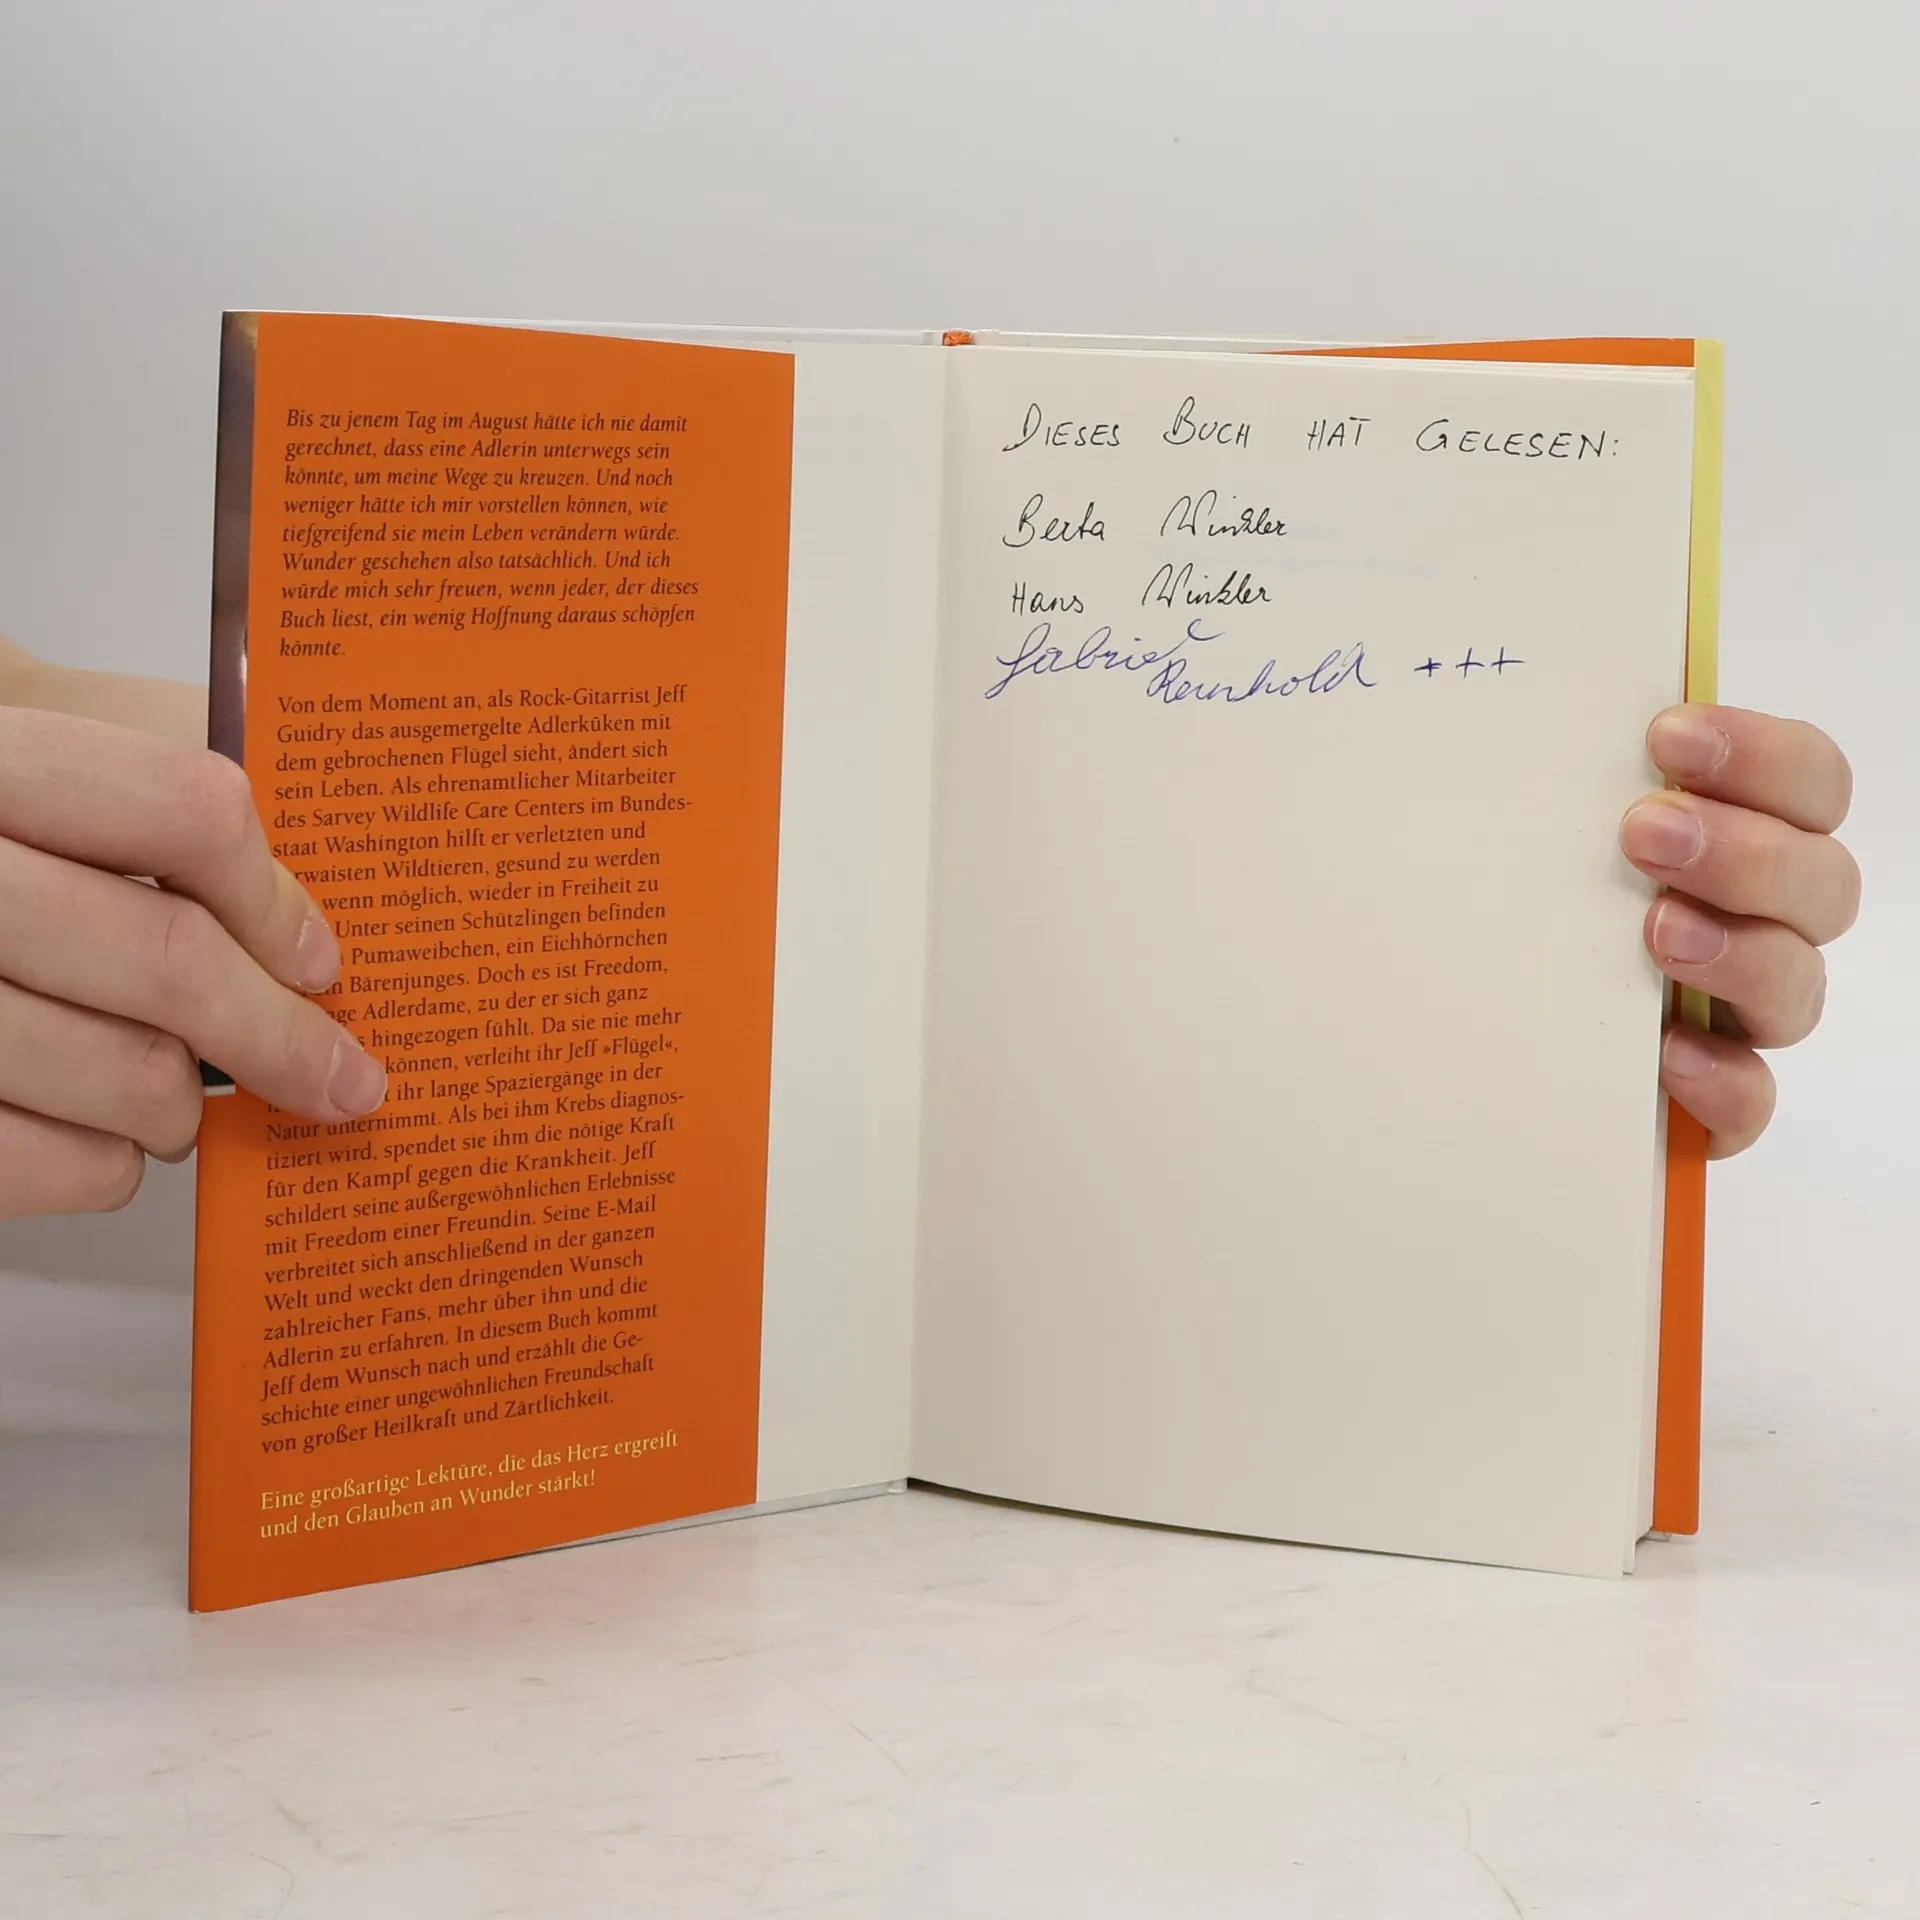 Bis zu jenem Tag im August hätte ich nie damit
gerechnet, dass eine Adlerin unterwegs sein
könnte, um meine Wege zu kreuzen. Und noch
weniger hätte ich mir vorstellen können, wie
tiefgreifend sie mein Leben verändern würde.
Wunder geschehen also tatsächlich. Und ich
würde mich sehr freuen, wenn jeder, der dieses
Buch liest, ein wenig Hoffnung daraus schöpfen
könnte.
Von dem Moment an, als Rock-Gitarrist Jeff
Guidry das ausgemergelte Adlerküken mit
dem gebrochenen Flügel sieht, ändert sich
sein Leben. Als ehrenamtlicher Mitarbeiter
des Sarvey Wildlife Care Centers im Bundes-
staat Washington hilft er verletzten und
rwaisten Wildtieren, gesund zu werden
wenn möglich, wieder in Freiheit zu
Unter seinen Schützlingen befinden
Pumaweibchen, ein Eichhörnchen
n Bärenjunges. Doch es ist Freedom,
ge Adlerdame, zu der er sich ganz
s hingezogen fühlt. Da sie nie mehr
können, verleiht ihr Jeff »Flügel«,
t ihr lange Spaziergänge in der
Natur unternimmt. Als bei ihm Krebs diagnos-
tiziert wird, spendet sie ihm die nötige Kraft
für den Kampf gegen die Krankheit. Jeff
schildert seine außergewöhnlichen Erlebnisse
mit Freedom einer Freundin. Seine E-Mail
verbreitet sich anschließend in der ganzen
Welt und weckt den dringenden Wunsch
zahlreicher Fans, mehr über ihn und die
Adlerin zu erfahren. In diesem Buch kommt
Jeff dem Wunsch nach und erzählt die Ge-
schichte einer ungewöhnlichen Freundschaft
von großer Heilkraft und Zärtlichkeit.
Eine großartige Lektüre, die das Herz ergreift
und den Glauben an Wunder stärkt!
DIESES BUCH HAT GELESEN:
Berta Winkler
Hans Winkler
Gabriel
Reinhold +++